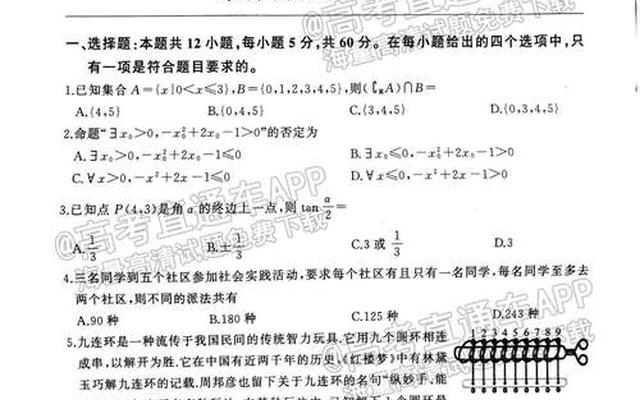 一、选择题:本题共 12 小题,每小题 5 分,共 60 分。在每小题给出的四个选项中,只
有一项是符合题目要求的。
1.已知集合 A={x|0<x≤3},B={0,1,2,3,4,5},则(∁ᴿA)∩B=
A.{4,5} B.{0,4,5} C.{3,4,5} D.{0,3,4,5}
2.命题“∃x₀>0,-x₀²+2x₀-1>0”的否定为
A.∃x₀>0,-x₀²+2x₀-1≤0 B.∃x₀≤0,-x₀²+2x₀-1>0
C.∀x>0,-x²+2x-1≤0 D.∀x≤0,-x²+2x-1>0
3.已知点 P(4,3)是角 α 的终边上一点,则 tan α/2=
A.1/3 B.±1/3 C.3 或 1/3 D.3
4.三名同学到五个社区参加社会实践活动,要求每个社区有且只有一名同学,每名同学至多去
两个社区,则不同的派法共有
A.90 种 B.180 种 C.125 种 D.243 种
5.九连环是一种流传于我国民间的传统智力玩具.它用九个圆环相连
成串,以解开为胜.它在中国有近两千年的历史,《红楼梦》中有林黛
玉巧解九连环的记载.周邦彦也留下关于九连环的名句“纵妙手、能
1 2 3 4 5 6 7 8 9
@高考直通车APP
海量高清试题免费下载
@高考直通车APP
海量高清试题免费下载
@高考直通车APP
海量高清试题免费下载